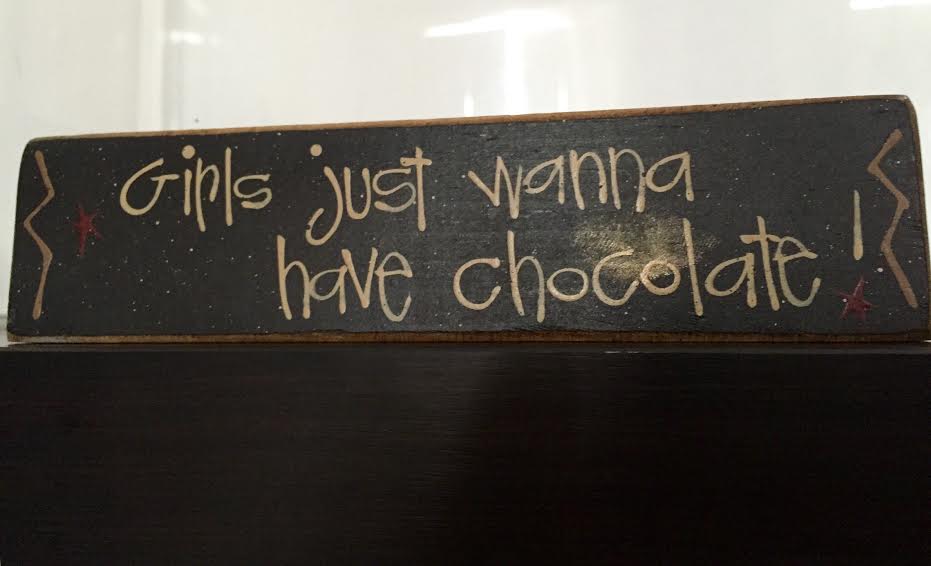 Girls just wanna
have chocolate!